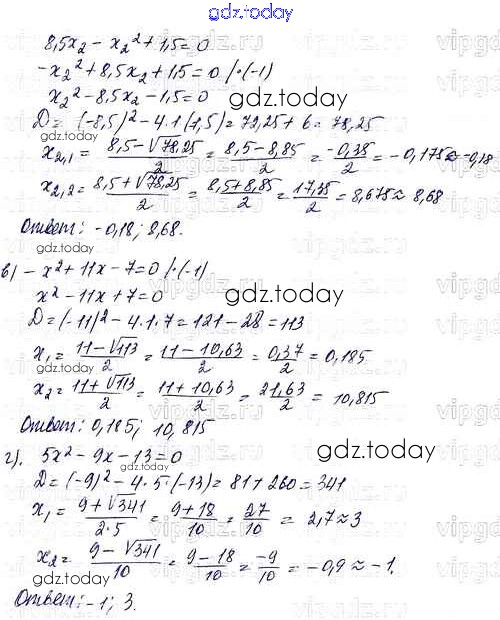 gdz.today
8,5x₂ − x₂² + 1,5 = 0
−x₂² + 8,5x₂ + 1,5 = 0 /·(−1)
x₂² − 8,5x₂ − 1,5 = 0
gdz.today
D = (−8,5)² − 4·1·(1,5) = 72,25 + 6 = 78,25
x₂,₁ = (8,5 − √78,25)/2 = (8,5 − 8,85)/2 = −0,35/2 = −0,175 ≈ −0,18
x₂,₂ = (8,5 + √78,25)/2 = (8,5 + 8,85)/2 = 17,35/2 = 8,675 ≈ 8,68
Ответ: −0,18; 8,68.
gdz.today
в) −x² + 11x − 7 = 0 /·(−1)
x² − 11x + 7 = 0
gdz.today
D = (−11)² − 4·1·7 = 121 − 28 = 113
x₁ = (11 − √113)/2 = (11 − 10,63)/2 = 0,37/2 = 0,185
x₂ = (11 + √113)/2 = (11 + 10,63)/2 = 21,63/2 = 10,815
Ответ: 0,185; 10,815
gdz.today
г). 5x² − 9x − 13 = 0
gdz.today
D = (−9)² − 4·5·(−13) = 81 + 260 = 341
x₁ = (9 + √341)/(2·5) = (9 + 18)/10 = 27/10 = 2,7 ≈ 3
x₂ = (9 − √341)/10 = (9 − 18)/10 = −9/10 = −0,9 ≈ −1.
gdz.today
Ответ: −1; 3.
gdz.today